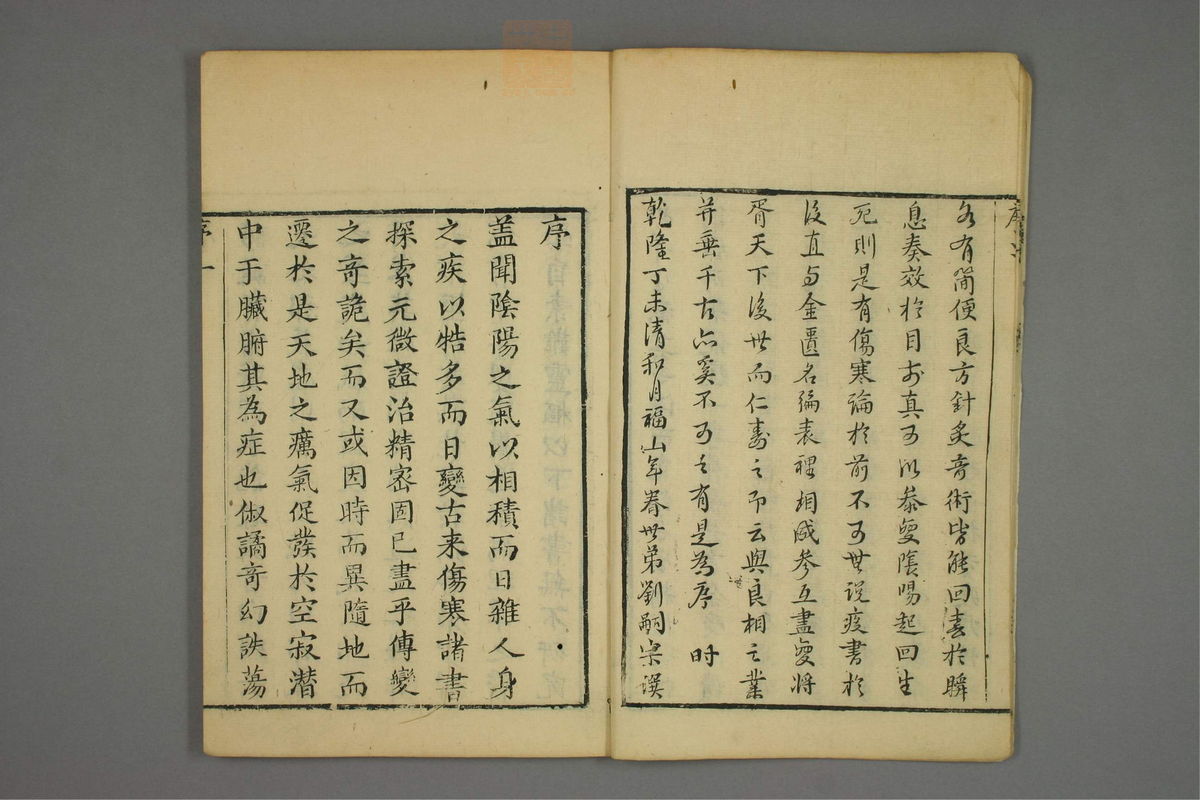 各有簡便良方針灸奇術皆能回春於瞬
息奏效於目前真可以參變陰陽起回生
死則是有傷寒論於前不可無說疫書於
後直与金匱名編表裡相成參互盡變將
胥天下後世而仁壽之即云與良相之業
并垂千古亦奚不可之有是為序 时
乾隆丁未清和月福山年眷世弟劉嗣宗譔
序
蓋聞陰陽之氣以相積而日雜人身
之疾以牿多而日變古来傷寒諸書
探索元微證治精密固已盡乎傳變
之奇詭矣而又或因時而異隨地而
遷於是天地之癘氣促發於空寂潛
中于臟腑其為症也俶譎奇幻詄蕩
序 一